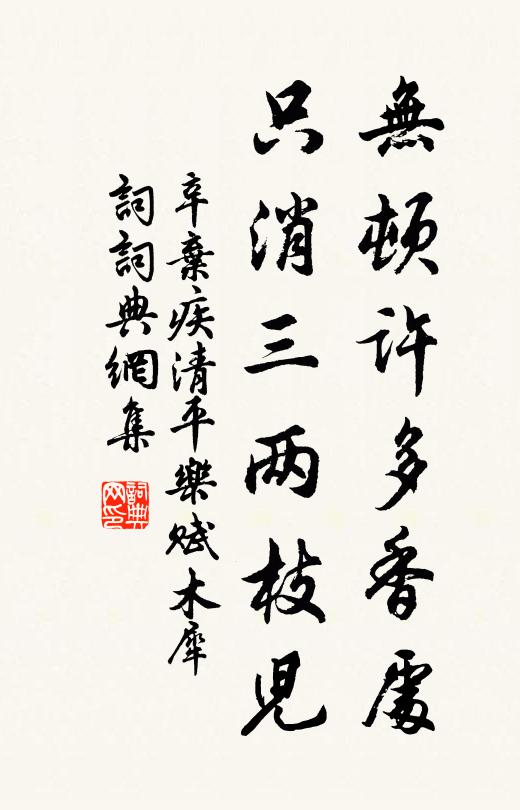 無頓許多香處
只消三两枝兒
辛棄疾清平樂賦木犀
詞詞典網集
詞典网印